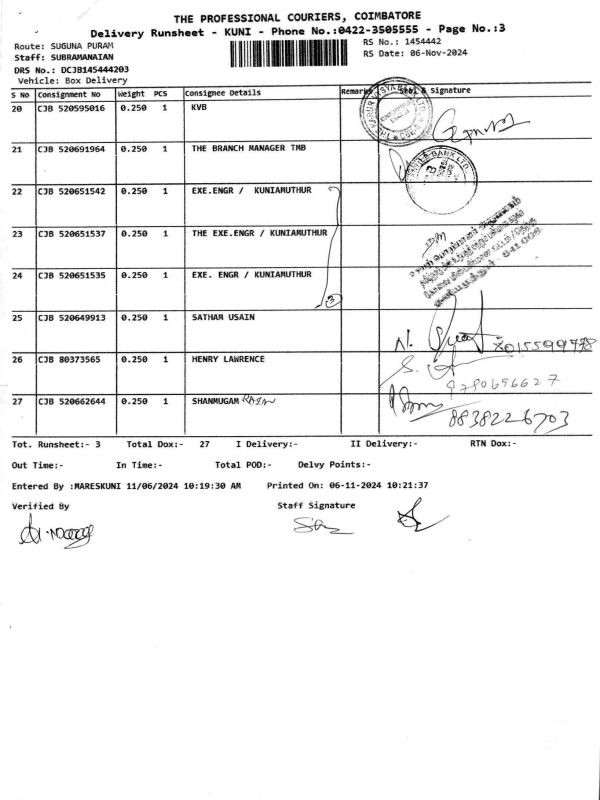 THE PROFESSIONAL COURIERS, COIMBATORE
Delivery Runsheet - KUNI - Phone No.:0422-3505555 - Page No.:3
Route: SUGUNA PURAM
RS No.: 1454442
Staff: SUBRAMANAIAN
RS Date: 06-Nov-2024
DRS No.: DCJB145444203
Vehicle: Box Delivery
S No Consignment No Weight PCS Consignee Details Remarks & Signature
20 CJB 520595016 0.250 1 KVB
21 CJB 520691964 0.250 1 THE BRANCH MANAGER TMB
22 CJB 520651542 0.250 1 EXE.ENGR / KUNIAMUTHUR
23 CJB 520651537 0.250 1 THE EXE.ENGR / KUNIAMUTHUR
24 CJB 520651535 0.250 1 EXE. ENGR / KUNIAMUTHUR
3
25 CJB 520649913 0.250 1 SATHAM USAIN
8015599978
26 CJB 80373565 0.250 1 HENRY LAWRENCE
9780696627
27 CJB 520662644 0.250 1 SHANMUGAM RAJAN
8838226703
Tot. Runsheet:- 3 Total Dox:- 27 I Delivery:- II Delivery:- RTN Dox:-
Out Time:- In Time:- Total POD:- Delvy Points:-
Entered By :MARESKUNI 11/06/2024 10:19:30 AM Printed On: 06-11-2024 10:21:37
Verified By Staff Signature